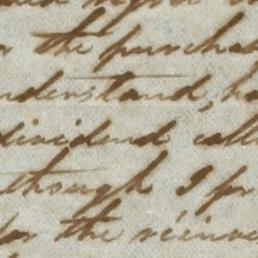 the purchas
nderstand, ha
dividend call
though I pr
for the reinve